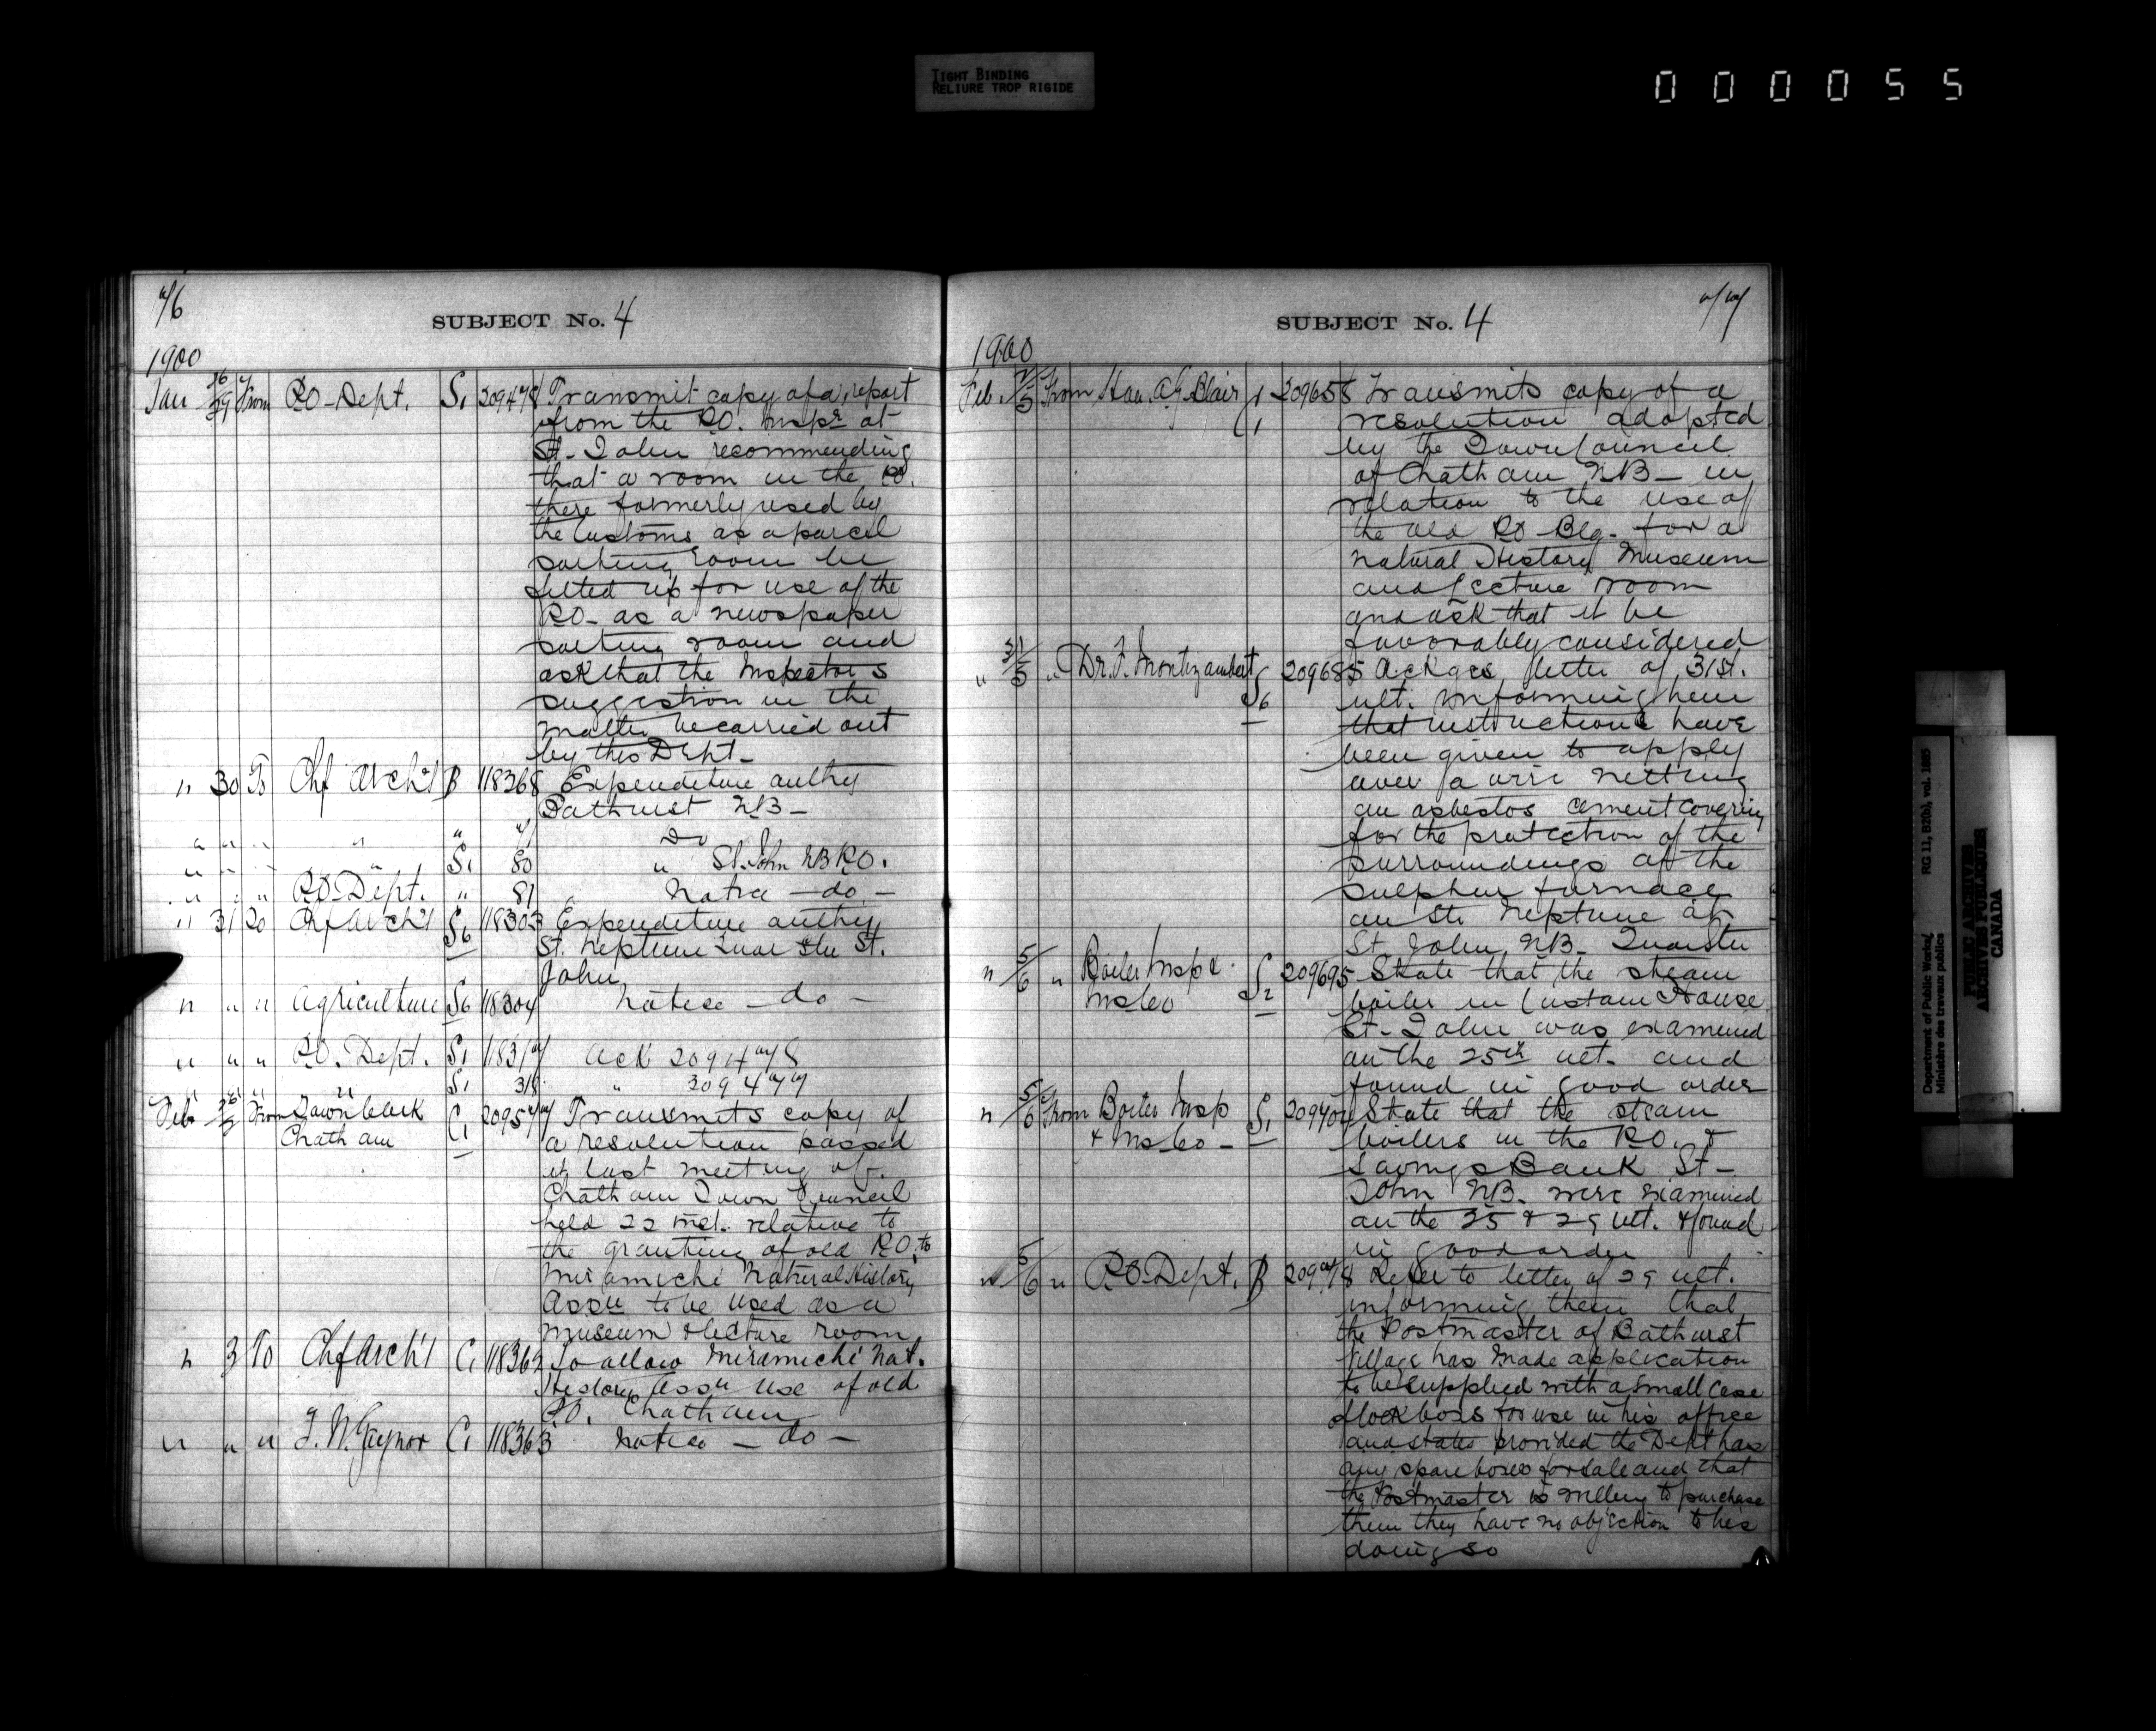 TIGHT BINDING
RELIURE TROP RIGIDE
000055
76
SUBJECT No. 4
1900
Jan 26/29 From P.O. Dept. S1 209478 Transmit copy of a report
from the P.O. Inspr at
St. John recommending
that a room in the P.O.
there formerly used by
the Customs as a parcel
sorting room be
fitted up for use of the
P.O. as a newspaper
sorting room and
ask that the Inspectors
suggestion in the
matter be carried out
by this Dept.
" 30 To Chf Arch't B 118268 Expenditure authy
Bathurst NB -
" " " " " 7 Do
" " " " S1 80 " St. John NB P.O.
" " " P.O. Dept. " 81 Notice - do -
" 31 To Chf Arch't S6 118303 Expenditure authy
St. Neptune Quar Stn St.
John
" " " Agriculture S6 118304 Notice - do -
" " " P.O. Dept. S1 118317 Ack 209478
" " " " S1 318 " 309477
Feb From Town Clerk C1 209577 Transmits copy of
Chatham a resolution passed
at last meeting of
Chatham Town Council
held 22 inst. relative to
the granting of old P.O. to
Miramichi Natural History
Assn to be used as a
museum & lecture room
" 3 To Chf Arch't C1 118362 To allow Miramichi Nat.
History Assn use of old
P.O. Chatham
" " " J. W. Gaynor C1 118363 Notice - do -
77
SUBJECT No. 4
1900
Feb. 2/5 From Hon. A.G. Blair C1 209658 Transmits copy of a
resolution adopted
by the Town Council
of Chatham NB - in
relation to the use of
the old P.O. Blg. for a
Natural History Museum
and lecture room
and ask that it be
favorably considered
" 31/5 " Dr. F. Montizambert S6 209685 Ackges letter of 31st.
ult. informing him
that instructions have
been given to apply
over a wire netting
an asbestos cement covering
for the protection of the
surroundings of the
sulphur furnace
on Str. Neptune at
St. John, NB. Quar Stn
" 5/6 " Boiler Insp & S2 209695 State that the steam
Ins Co boiler in Custom House
St. John was examined
on the 25th ult. and
found in good order
" 5/6 From Boiler Insp S1 209704 State that the steam
& Ins Co - boilers in the P.O. &
Savings Bank St -
John NB. were examined
on the 25 & 29 ult. & found
in good order
" 5/6 " P.O. Dept. B 209718 Refer to letter of 29 ult.
informing them that
the Postmaster of Bathurst
Village has made application
to be supplied with a small case
of lock boxes for use in his office
and states provided the Dept has
any spare boxes for sale and that
the Postmaster is willing to purchase
them they have no objection to his
doing so
Department of Public Works/
Ministère des travaux publics
RG 11, B2(b), vol. 1885
PUBLIC ARCHIVES
ARCHIVES PUBLIQUES
CANADA